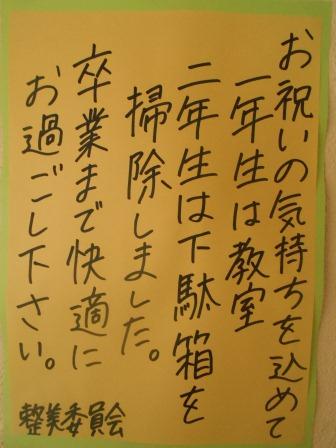 お祝いの気持ちを込めて
一年生は教室
二年生は下駄箱を
掃除しました。
卒業まで快適に
お過ごし下さい。
整美委員会